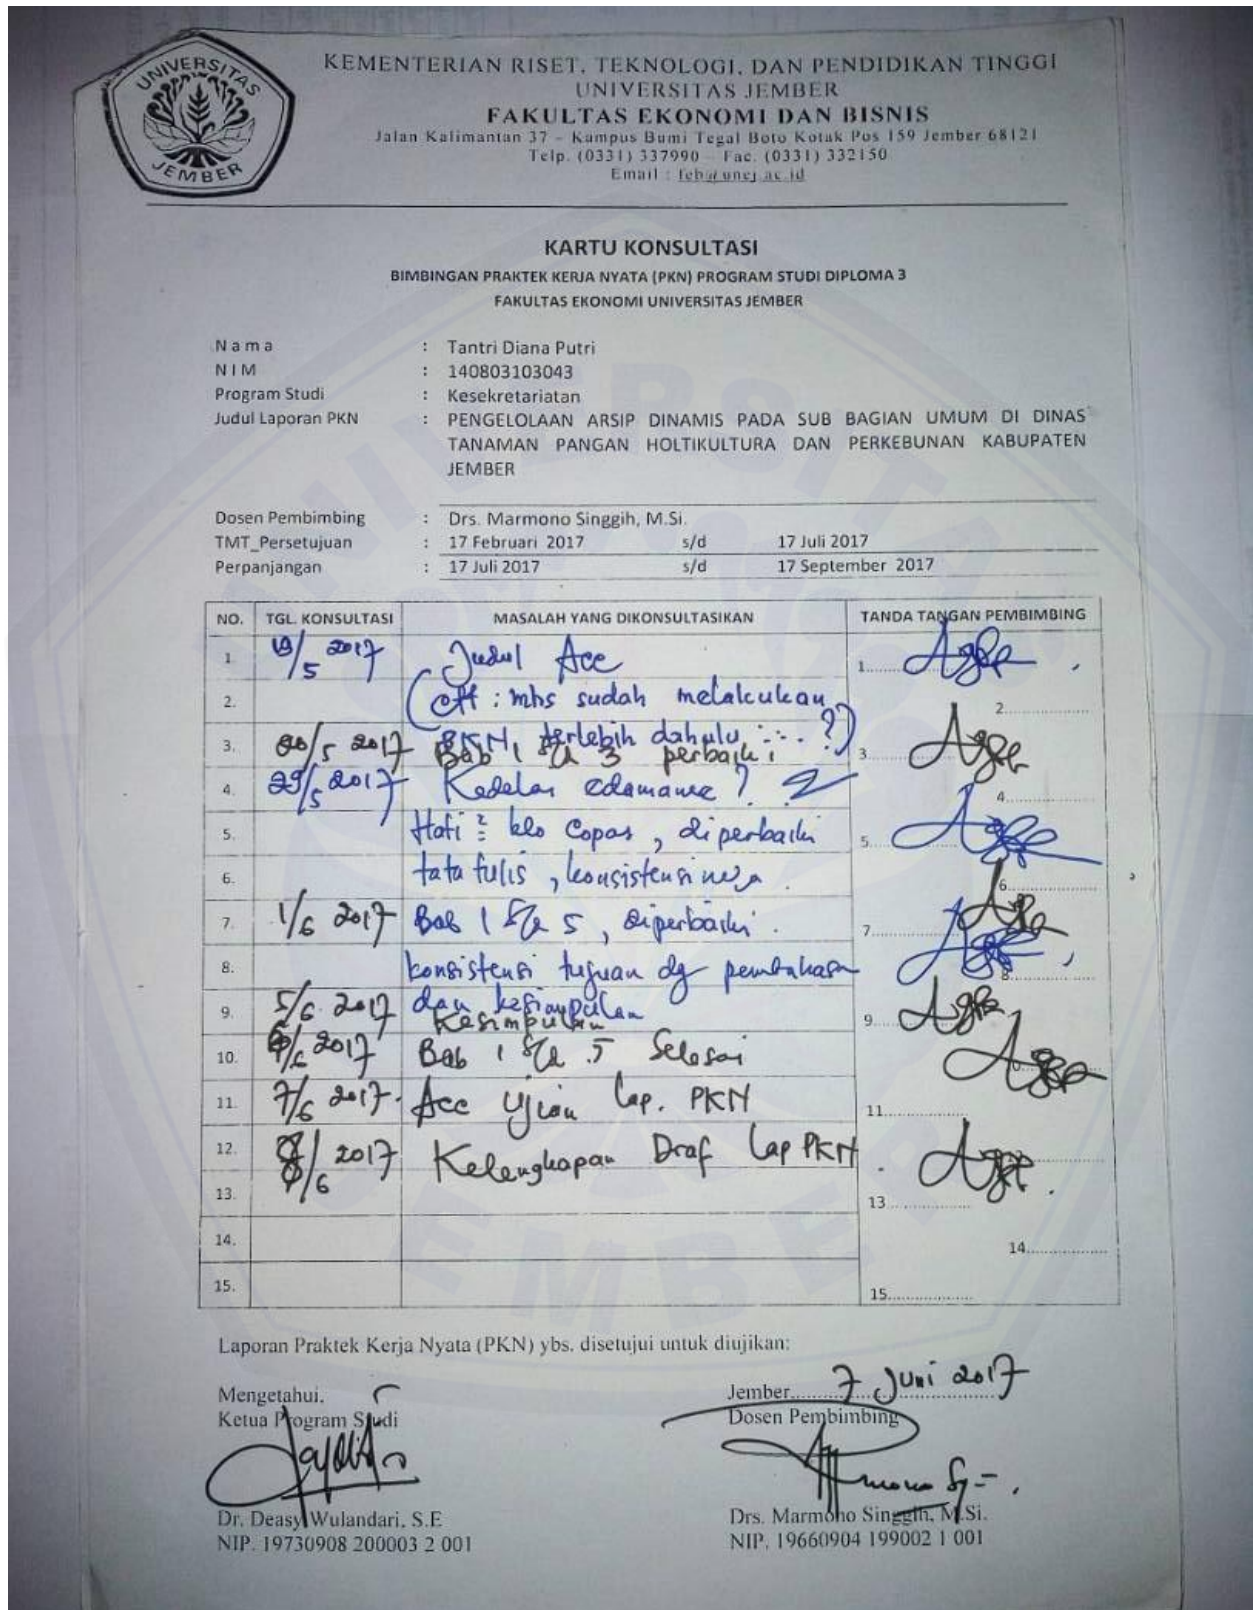 UNIVERSITAS
JEMBER
KEMENTERIAN RISET, TEKNOLOGI, DAN PENDIDIKAN TINGGI
UNIVERSITAS JEMBER
FAKULTAS EKONOMI DAN BISNIS
Jalan Kalimantan 37 – Kampus Bumi Tegal Boto Kotak Pos 159 Jember 68121
Telp. (0331) 337990 – Fac. (0331) 332150
Email : feb@unej.ac.id
KARTU KONSULTASI
BIMBINGAN PRAKTEK KERJA NYATA (PKN) PROGRAM STUDI DIPLOMA 3
FAKULTAS EKONOMI UNIVERSITAS JEMBER
Nama : Tantri Diana Putri
NIM : 140803103043
Program Studi : Kesekretariatan
Judul Laporan PKN : PENGELOLAAN ARSIP DINAMIS PADA SUB BAGIAN UMUM DI DINAS
TANAMAN PANGAN HOLTIKULTURA DAN PERKEBUNAN KABUPATEN
JEMBER
Dosen Pembimbing : Drs. Marmono Singgih, M.Si.
TMT_Persetujuan : 17 Februari 2017 s/d 17 Juli 2017
Perpanjangan : 17 Juli 2017 s/d 17 September 2017
NO. TGL. KONSULTASI MASALAH YANG DIKONSULTASIKAN TANDA TANGAN PEMBIMBING
1. /5 2017 Judul Acc 1
2. : mhs sudah melakukan 2
3. /5 2017 PKN terlebih dahulu ... ?) 3
Bab 1 s/d 3 perbaiki
4. 29/5 2017 Kedelai edamame ? 4
5. Hati² klo Copas, diperbaiki 5
6. tata tulis, konsistensinya. 6
7. 1/6 2017 Bab 1 s/d 5, diperbaiki. 7
8. konsistensi tujuan dg pembahasan 8
9. 5/6 2017 dan kesimpulan 9
Kesimpulan
10. /6 2017 Bab 1 s/d 5 Selesai
11. 7/6 2017. Acc Ujian Lap. PKN 11
12. /6 2017 Kelengkapan Draf Lap PKN
13. 13
14. 14
15. 15
Laporan Praktek Kerja Nyata (PKN) ybs. disetujui untuk diujikan:
Jember 7 Juni 2017
Mengetahui,
Ketua Program Studi Dosen Pembimbing
Dr. Deasy Wulandari, S.E Drs. Marmono Singgih, M.Si.
NIP. 19730908 200003 2 001 NIP. 19660904 199002 1 001